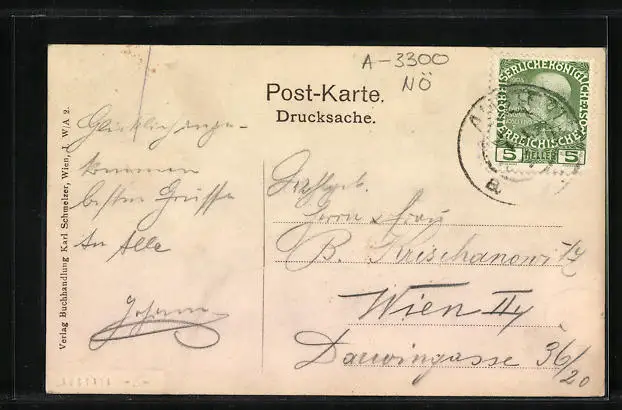 A-3300
NÖ
Post-Karte.
Drucksache.
KAISERLICHE KÖNIGLICHE
ÖSTERREICHISCHE POST
5 HELLER 5
B.
Glücklich ange-
kommen
besten Grüsse
An Alle
Johann
Herrn & Frau
B. Krischanowitz
Wien II/4
Darwingasse 36/20
Verlag Buchhandlung Karl Schmelzer, Wien, I. W/A 2.